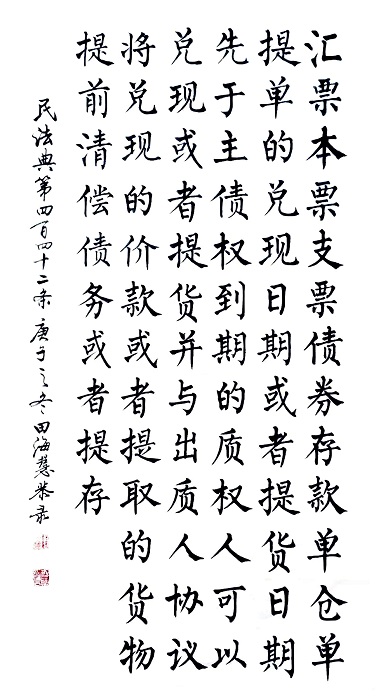 汇票本票支票债券存款单仓单
提单的兑现日期或者提货日期
先于主债权到期的质权人可以
兑现或者提货并与出质人协议
将兑现的价款或者提取的货物
提前清偿债务或者提存
民法典第四百四十二条庚子之冬田海慧恭录